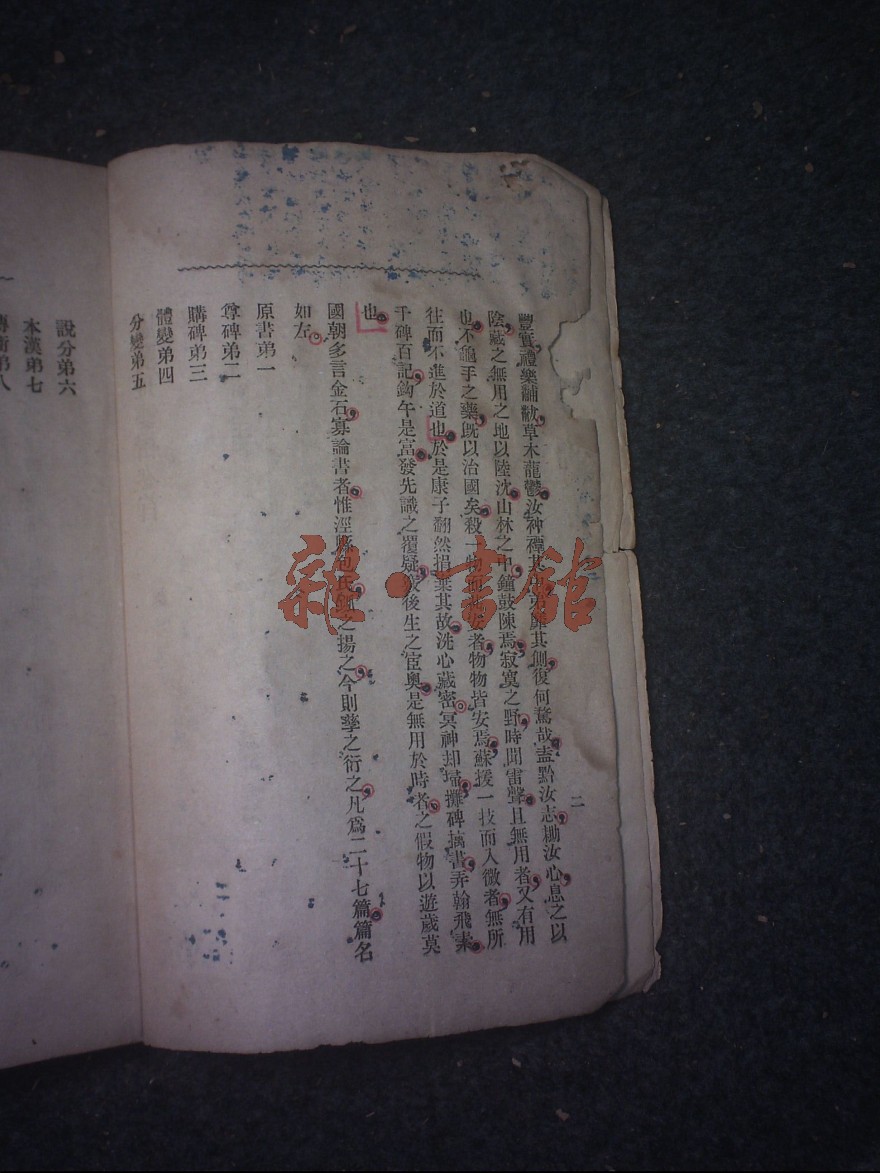 豐實禮樂黼黻草木龍鬱汝神禪其側復何騖哉盍黔汝志鋤汝心息之以
陰藏之無用之地以陸沈山林之中鐘鼓陳焉寂寞之野時聞雷聲且無用者又有用
也不龜手之藥旣以治國矣殺一物而者物物皆安焉蘇援一技而入微者無所
往而不進於道也於是康子翻然捐棄其故洗心藏密冥神却埽攤碑摛書弄翰飛素
千碑百記鈎午是富發先識之覆疑後生之宧奧是無用於時者之假物以遊歲莫
也
國朝多言金石寡論書者惟涇縣包氏之揚之今則孳之衍之凡爲二十七篇篇名
如左
原書弟一
尊碑弟二
購碑弟三
體變弟四
分變弟五
說分弟六
本漢弟七
弟八
二
雜·書館